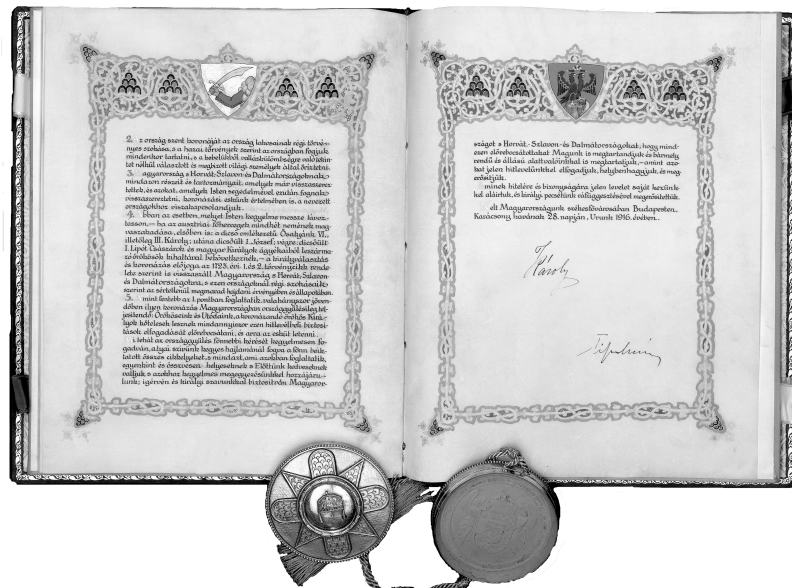 2. z ország szent koronáját az ország lakosainak régi törvé-
nyes szokása, s a hazai törvények szerint az országban fogjuk
mindenkor tartatni, s a bebelükből valláskülömbségre való tekin-
tet nélkül választott és megbizott világi személyek által őriztetni.
3. agyarország s Horvát-Szlavon és Dalmátországoknak
mindazon részeit és tartományait, amelyek már visszasze-
reztettek, és azokat, amelyek Isten segedelmével ezután fognak
visszaszereztetni, koronázási eskünk értelmében is, a nevezett
országokhoz visszakapcsolandjuk.
4. bban az esetben, melyet Isten kegyelme messze távoz-
tasson, – ha az ausztriai főherczegek mindkét nemének mag-
vaszakadása, elsőben is: a dicső emlékezetű Ősatyánk VI.,
illetőleg III. Károly; utána dicsőült I. József; végre: dicsőült
I. Lipót Császárok és magyar Királyok ágyékaiból leszárma-
zó örökösök kihaltával bekövetkeznék, – a királyválasztás
és koronázás előjoga az 1723. évi 1. és 2. törvényczikk rende
lete szerint is visszaszáll Magyarország s Horvát, Szlavon-
és Dalmátországokra, s ezen országoknál régi szokásaik
szerint az sértetlenül megmarad hajdani érvényében és állapotában.
5. mint fentebb az 1. pontban foglaltatik, valahányszor jöven-
dőben ilyen koronázás Magyarországban országgyűlésileg tel-
jesítendő: Örököseink és Utódaink, a koronázandó örökös Kirá-
lyok kötelesek lesznek mindannyiszor ezen hitlevélbeli biztosí-
tások elfogadását előrebocsátani, és arra az esküt letenni.
i tehát az országgyűlés főnnebbi kérését kegyelmesen fo-
gadván, atyai szivünk kegyes hajlamánál fogva a fönn beik-
tatott összes czikkelyeket, s mindazt, ami azokban foglaltatik,
egyenkint és összvesen helyeseknek s Előttünk kedveseknek
valljuk, s azokhoz kegyelmes megegyezésünkkel hozzájáru-
lunk; igérvén és királyi szavunkkal biztosítván Magyaror-
szágot s Horvát-, Szlavon- és Dalmátországokat, hogy mind-
ezen előrebocsátottakat Magunk is megtartandjuk és bármely
rendű és állású alattvalóinkkal is megtartatjuk, – amint azo-
kat jelen hitlevelünkkel elfogadjuk, helybenhagyjuk, és meg-
erősítjük.
minek hitelére és bizonyságára jelen levelet saját kezünk-
kel aláírtuk, és királyi pecsétünk ráfüggesztésével megerősítettük.
elt Magyarországunk székesfővárosában Budapesten,
Karácsony havának 28. napján, Urunk 1916. évében.
Károly